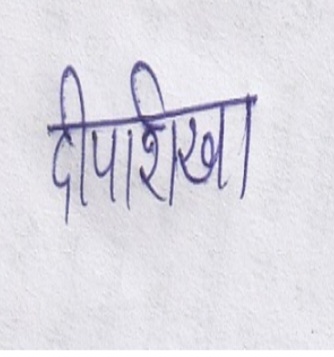 दीपशिखा